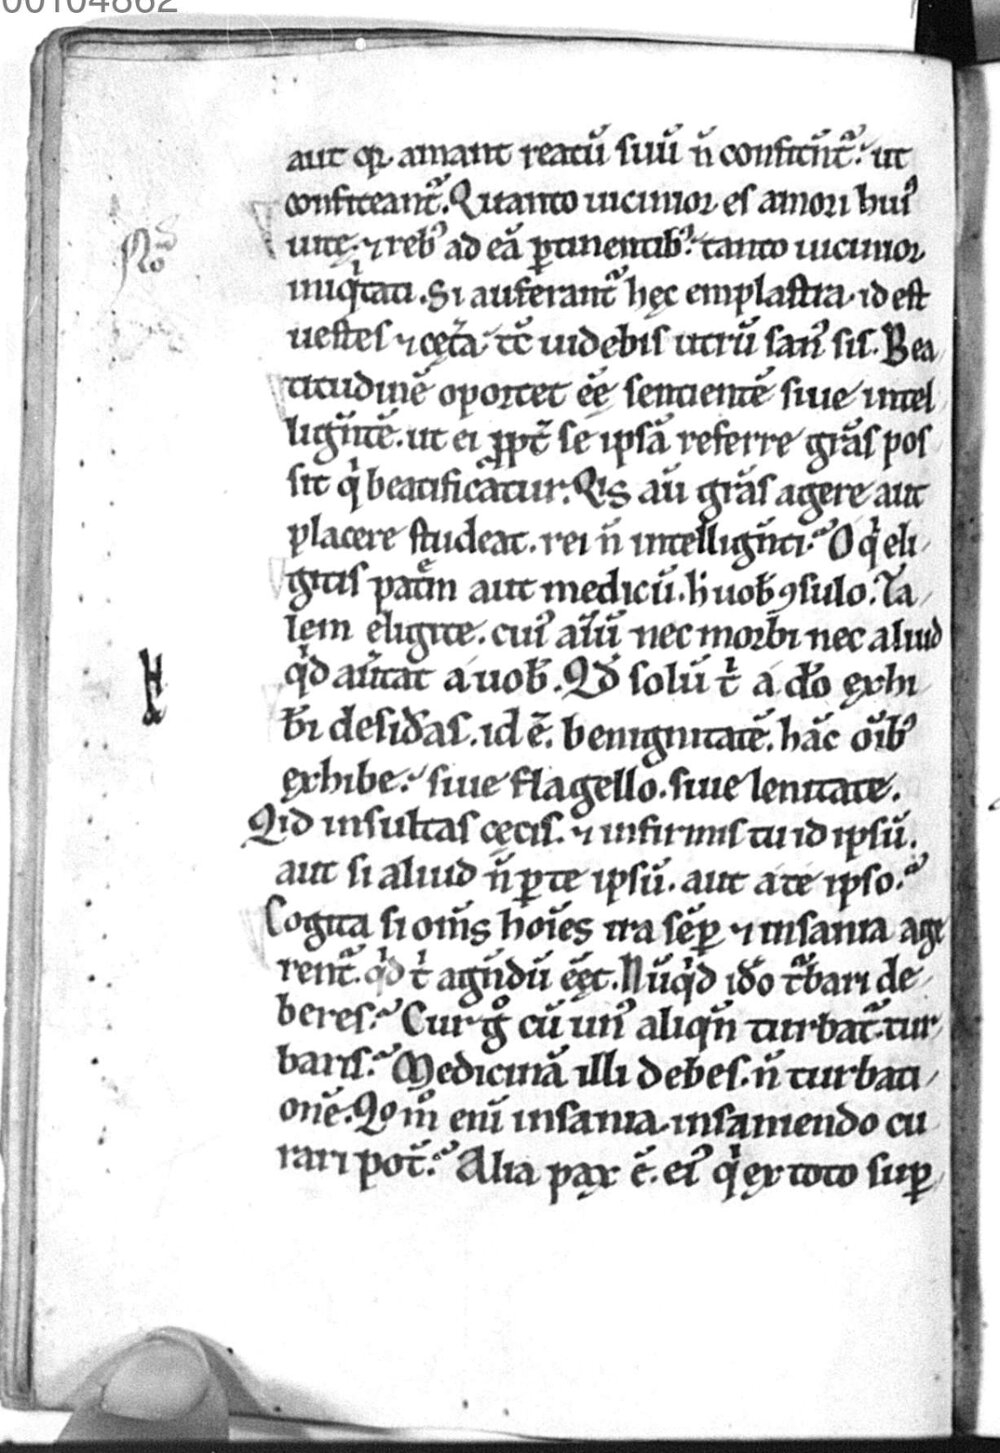 00104862
aut qꝛ amant reatū suū n̄ confitēt᷑. ut
confiteant᷑. Quanto uicinior es amori huiꝰ
uitę. ⁊ rebꝰ ad eā ꝑtinentibꝰ. tanto uicinior
iniq̇tati. Si auferant᷑ hęc emplastra. id est
uestes ⁊ cęt̄a. tc̄ uidebis utrū sanꝰ sis. Bea
titudinē oportet eē sentientē siue intel
ligēntē. ut ei ꝓpt̄ se ipsā referre grā̄s pos
sit q̇ beatificatur. Qis aū grā̄s agere aut
placere studeat. rei n̄ intelligēnti. O q̇ eli
gitis patrē̄m aut medicū. h̄ uob̄ ꝯsulo. Ta
lem eligite. cuiꝰ al̄iū nec morbi nec aliud
qḋ aūtat a uob̄. Qḋ solū t̄ a dō exhi
b̄i desid̄as. id ē. benignitatē. hāc oīb̄ꝰ
exhibe. siue flagello. siue lenitate.
Qid insultas cęcis. ⁊ infirmis tu id ipsū.
aut si aliud n̄ ꝑ te ipsū. aut a te ipso.
Cogita si om̄s hoīes ira sēꝑ ⁊ insania age
rent᷑. qḋ t̄ agn̄dū eēt. Nūqḋ iō t᷑bari de
beres. Cur gͦ cū unꝰ aliqn̄ turbat᷑. tur
baris. Medicinā illi debes. n̄ turbati
onē. Qom̊ eni insania. insaniendo cu
rari pot̄. Alia pax ē. eiꝰ q̇ ex toto suꝑ